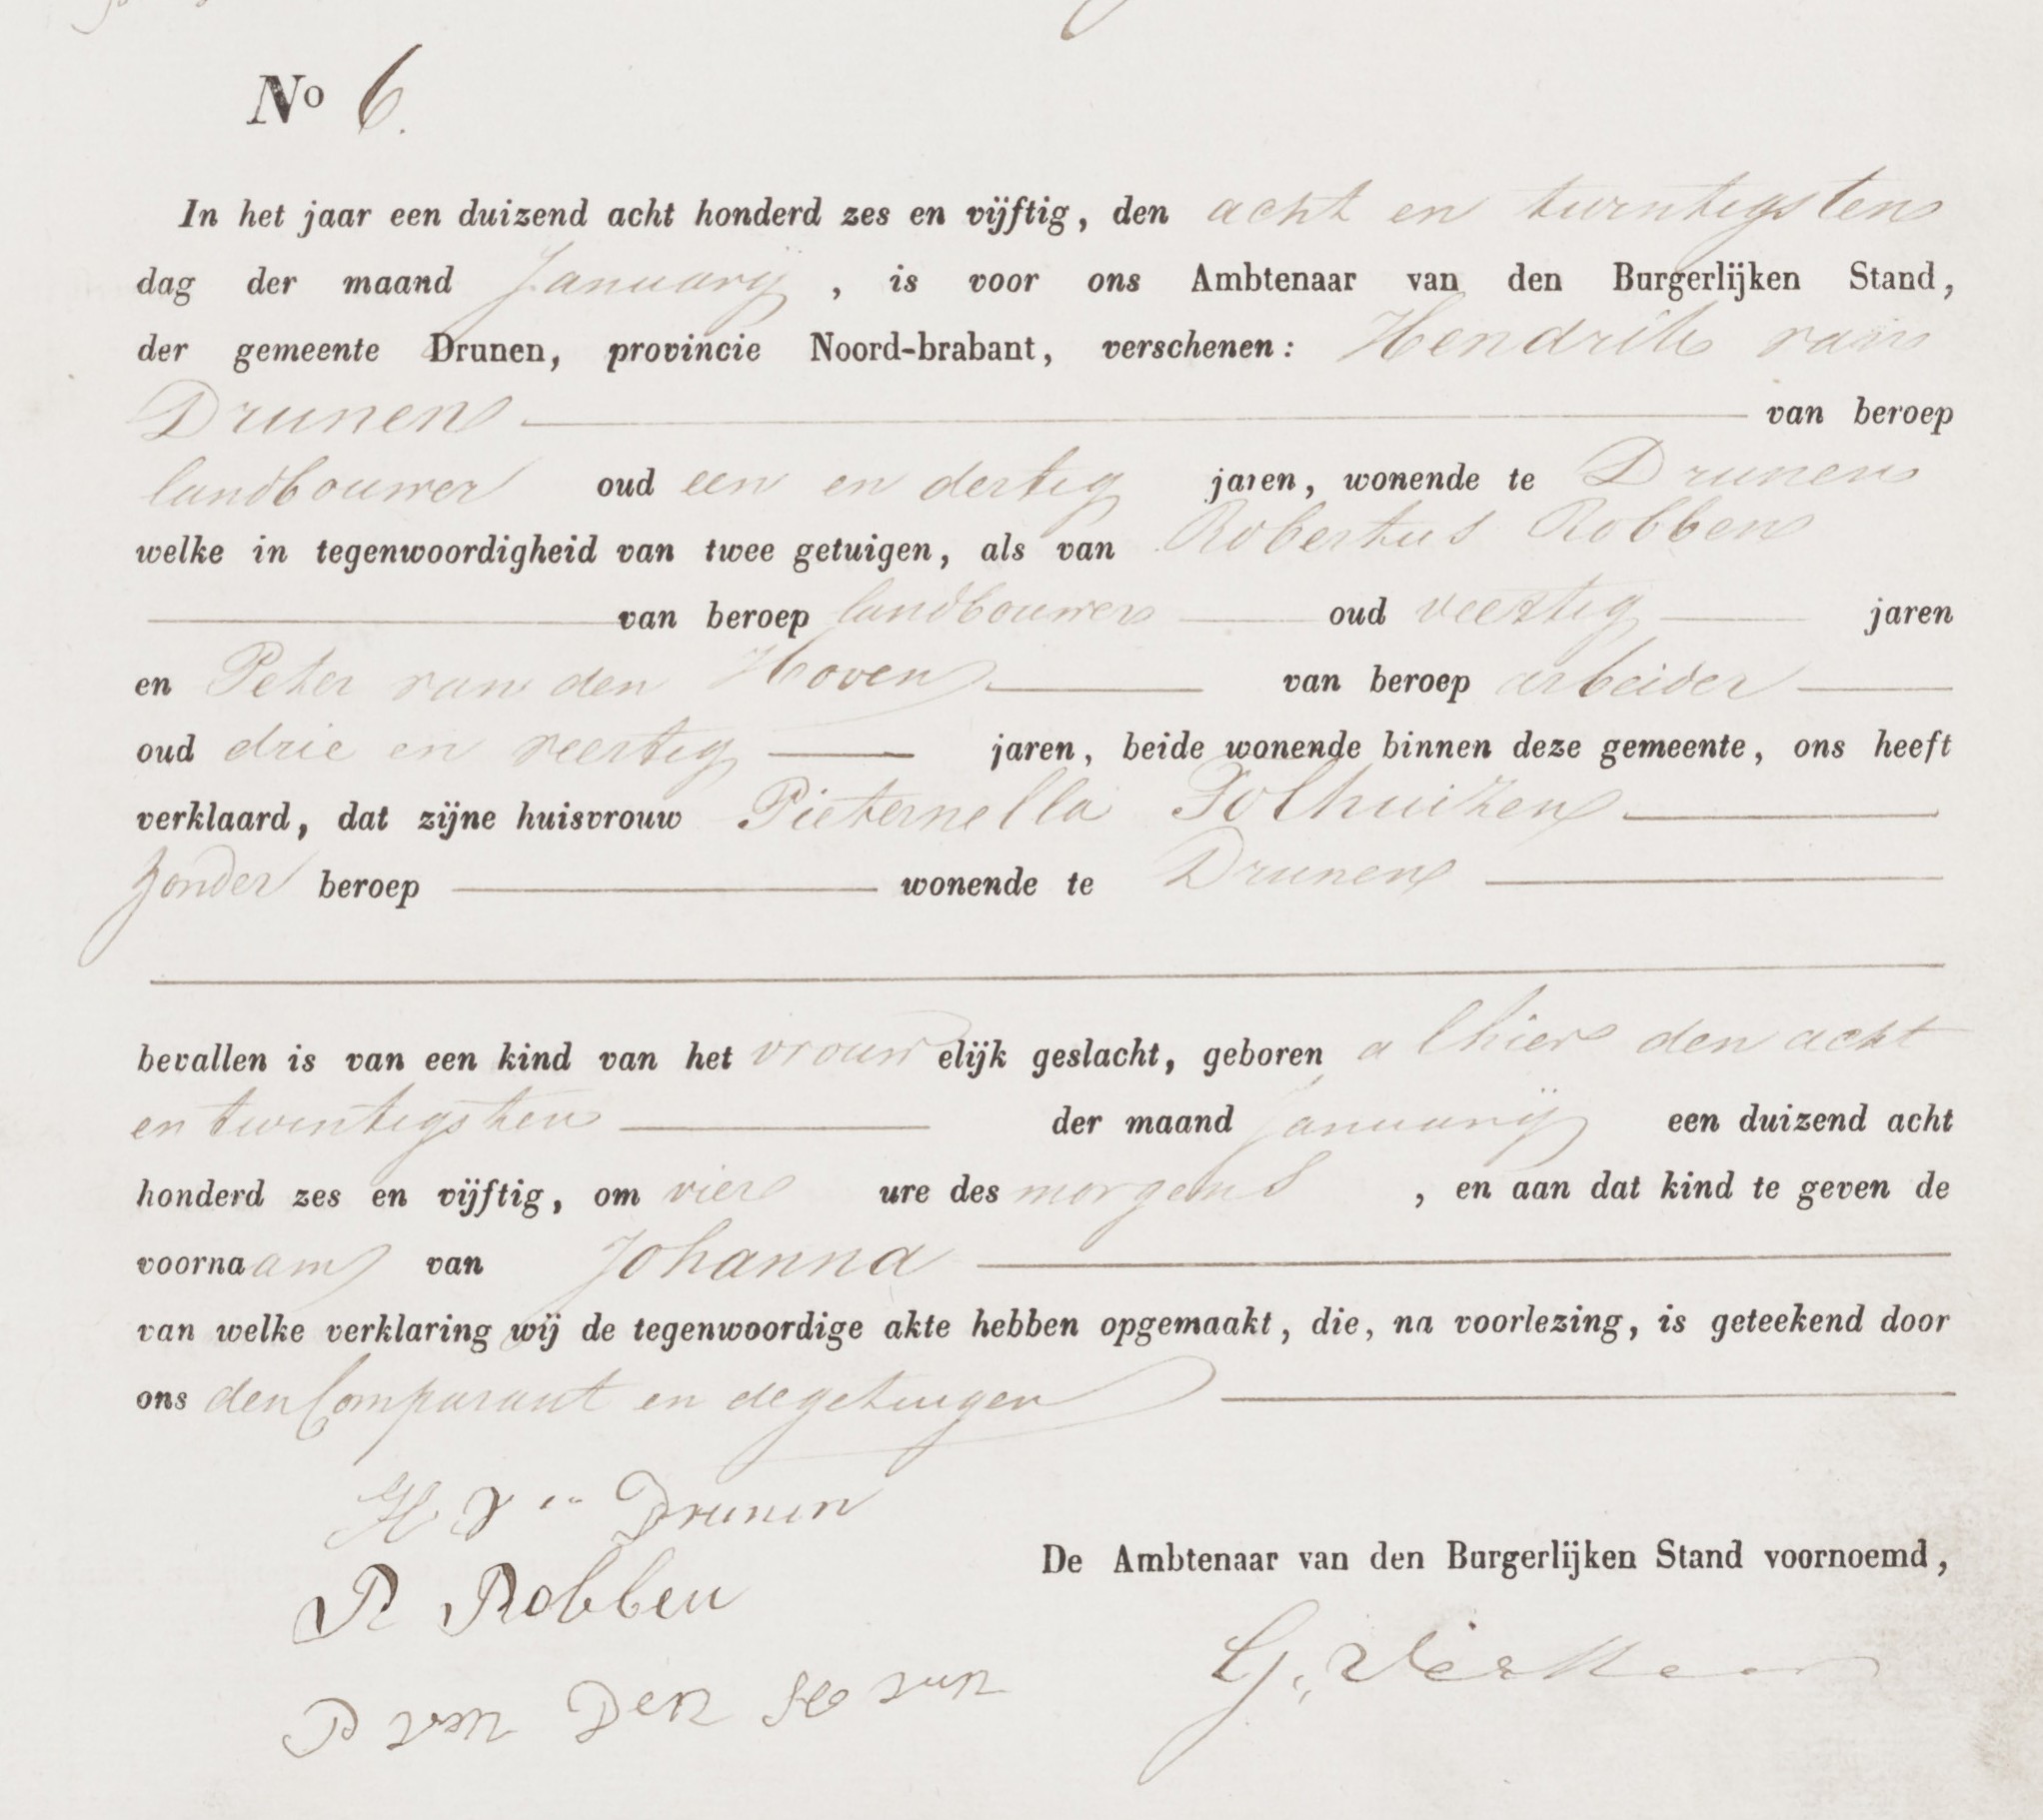 No 6.
In het jaar een duizend acht honderd zes en vijftig, den acht en twintigsten
dag der maand Januarij, is voor ons Ambtenaar van den Burgerlijken Stand,
der gemeente Drunen, provincie Noord-brabant, verschenen: Hendrik van
Drunen van beroep
landbouwer oud een en dertig jaren, wonende te Drunen
welke in tegenwoordigheid van twee getuigen, als van Robertus Robben
van beroep landbouwer oud veertig jaren
en Peter van den Hoven van beroep arbeider
oud drie en veertig jaren, beide wonende binnen deze gemeente, ons heeft
verklaard, dat zijne huisvrouw Pieternella Tolhuizen
zonder beroep wonende te Drunen
bevallen is van een kind van het vrouwelijk geslacht, geboren alhier den acht
en twintigsten der maand Januarij een duizend acht
honderd zes en vijftig, om vier ure des morgens, en aan dat kind te geven de
voornaam van Johanna
van welke verklaring wij de tegenwoordige akte hebben opgemaakt, die, na voorlezing, is geteekend door
ons den Comparant en de getuigen
H Van Drunen
R Robben
De Ambtenaar van den Burgerlijken Stand voornoemd,
P van Den Hoven
G.